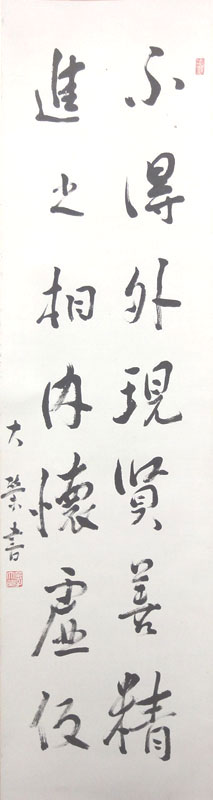 不得外現賢善精
進之相内懐虚仮
大榮書